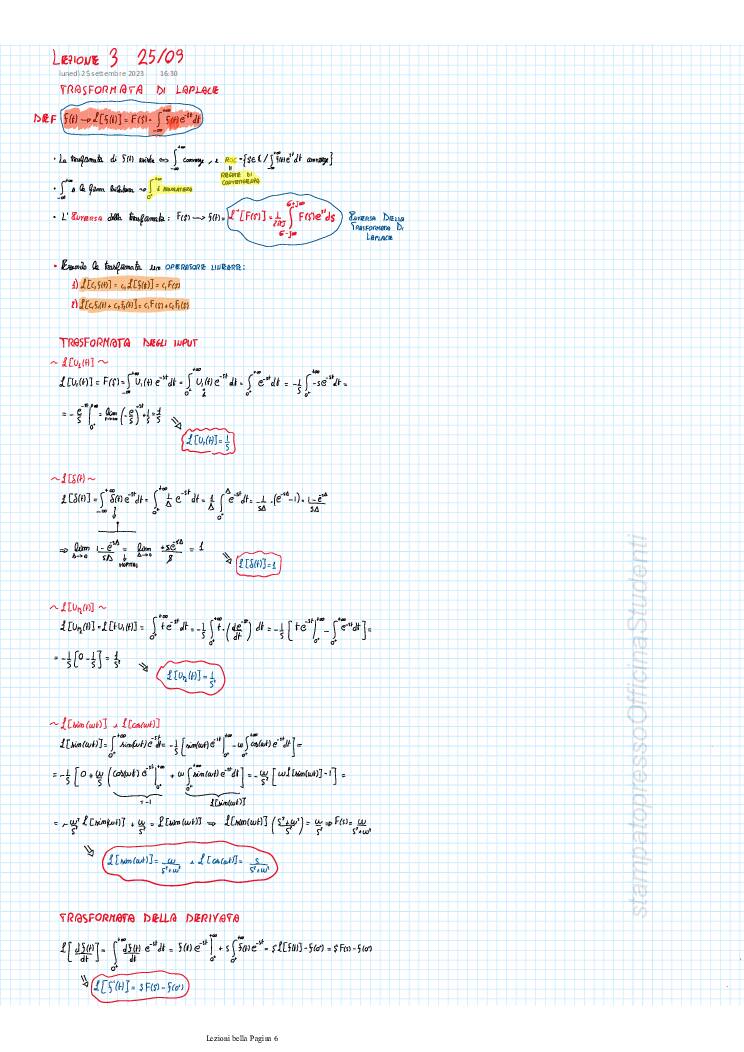 LEZIONE 3 25/09
lunedì 25 settembre 2023 16:30
TRASFORMATA DI LAPLACE
DEF f(t) → ℒ[f(t)] = F(s) = ∫_{-∞}^{+∞} f(t) e^{-st} dt
• La trasformata di f(t) esiste ⇔ ∫_{-∞}^{+∞} converge, e ROC = {s∈ℂ / ∫_{-∞}^{+∞} f(t) e^{-st} dt converge}
REGIONE DI CONVERGENZA
• ∫_{-∞}^{+∞} è la forma bilatera → ∫_{0^-}^{+∞} è MONOLATERA
• L'INVERSA della trasformata: F(s) → f(t) = ℒ^{-1}[F(s)] = 1/2πj ∫_{σ-j∞}^{σ+j∞} F(s) e^{st} ds INVERSA DELLA TRASFORMATA DI LAPLACE
• Essendo la trasformata un OPERATORE LINEARE:
1) ℒ[c₁f(t)] = c₁ℒ[f(t)] = c₁F(s)
2) ℒ[c₁f₁(t) + c₂f₂(t)] = c₁F₁(s) + c₂F₂(s)
TRASFORMATA DEGLI INPUT
~ ℒ[U₁(t)] ~
ℒ[U₁(t)] = F(s) = ∫_{-∞}^{+∞} U₁(t) e^{-st} dt = ∫_{0^-}^{+∞} U₁(t) e^{-st} dt = ∫_{0^-}^{+∞} e^{-st} dt = -1/s ∫_{0^-}^{+∞} -s e^{-st} dt =
⇒ ℒ[U₁(t)] = 1/s
~ ℒ[δ(t)] ~
ℒ[δ(t)] = ∫_{-∞}^{+∞} δ(t) e^{-st} dt = ∫_{0^-}^{+∞} 1/Δ e^{-st} dt = 1/Δ ∫_{0^-}^{Δ} e^{-st} dt = -1/sΔ · (e^{-sΔ} - 1) = (1 - e^{-sΔ})/sΔ
⇒ lim_{Δ→0} (1 - e^{-sΔ})/sΔ = lim_{Δ→0} +s e^{-sΔ}/s = 1 ⇒ ℒ[δ(t)] = 1
HOPITAL
~ ℒ[U_r(t)] ~
ℒ[U_r(t)] = ℒ[tU₁(t)] = ∫_{0^-}^{+∞} t e^{-st} dt = -1/s ∫_{0^-}^{+∞} t · (de^{-st}/dt) dt = -1/s [t e^{-st} |_{0^-}^{+∞} - ∫_{0^-}^{+∞} e^{-st} dt] =
= -1/s [0 - 1/s] = 1/s² ⇒ ℒ[U_r(t)] = 1/s²
~ ℒ[sin(ωt)] e ℒ[cos(ωt)]
ℒ[sin(ωt)] = ∫_{0^-}^{+∞} sin(ωt) e^{-st} dt = -1/s [sin(ωt) e^{-st} |_{0^-}^{+∞} - ω ∫_{0^-}^{+∞} cos(ωt) e^{-st} dt] =
= -1/s [0 + ω/s (cos(ωt) e^{-st} |_{0^-}^{+∞} + ω ∫_{0^-}^{+∞} sin(ωt) e^{-st} dt] = -ω/s² [ω ℒ[sin(ωt)] - 1] =
= -1 ℒ[sin(ωt)]
= -ω²/s² ℒ[sin(ωt)] + ω/s² = ℒ[sin(ωt)] ⇒ ℒ[sin(ωt)] (s²+ω²/s²) = ω/s² ⇒ F(s) = ω/s²+ω²
⇒ ℒ[sin(ωt)] = ω/s²+ω² e ℒ[cos(ωt)] = s/s²+ω²
TRASFORMATA DELLA DERIVATA
ℒ[df(t)/dt] = ∫_{0^-}^{+∞} df(t)/dt e^{-st} dt = f(t) e^{-st} |_{0^-}^{+∞} + s ∫_{0^-}^{+∞} f(t) e^{-st} = sℒ[f(t)] - f(0^-) = sF(s) - f(0^-)
⇒ ℒ[f'(t)] = sF(s) - f(0^-)
stampatopressoOfficinaStudenti
Lezioni bella Pagina 6